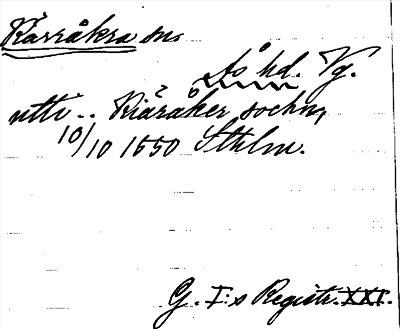 Kärråkra sn.
Ås hd. Vg.
utti .. Kiäråker sochn,
10/10 1550 Sthlm.
G. I:s Registr. XXI.